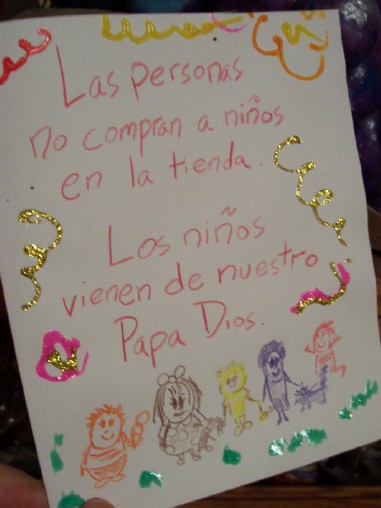 Las personas
no compran a niños
en la tienda.
Los niños
vienen de nuestro
Papa Dios.